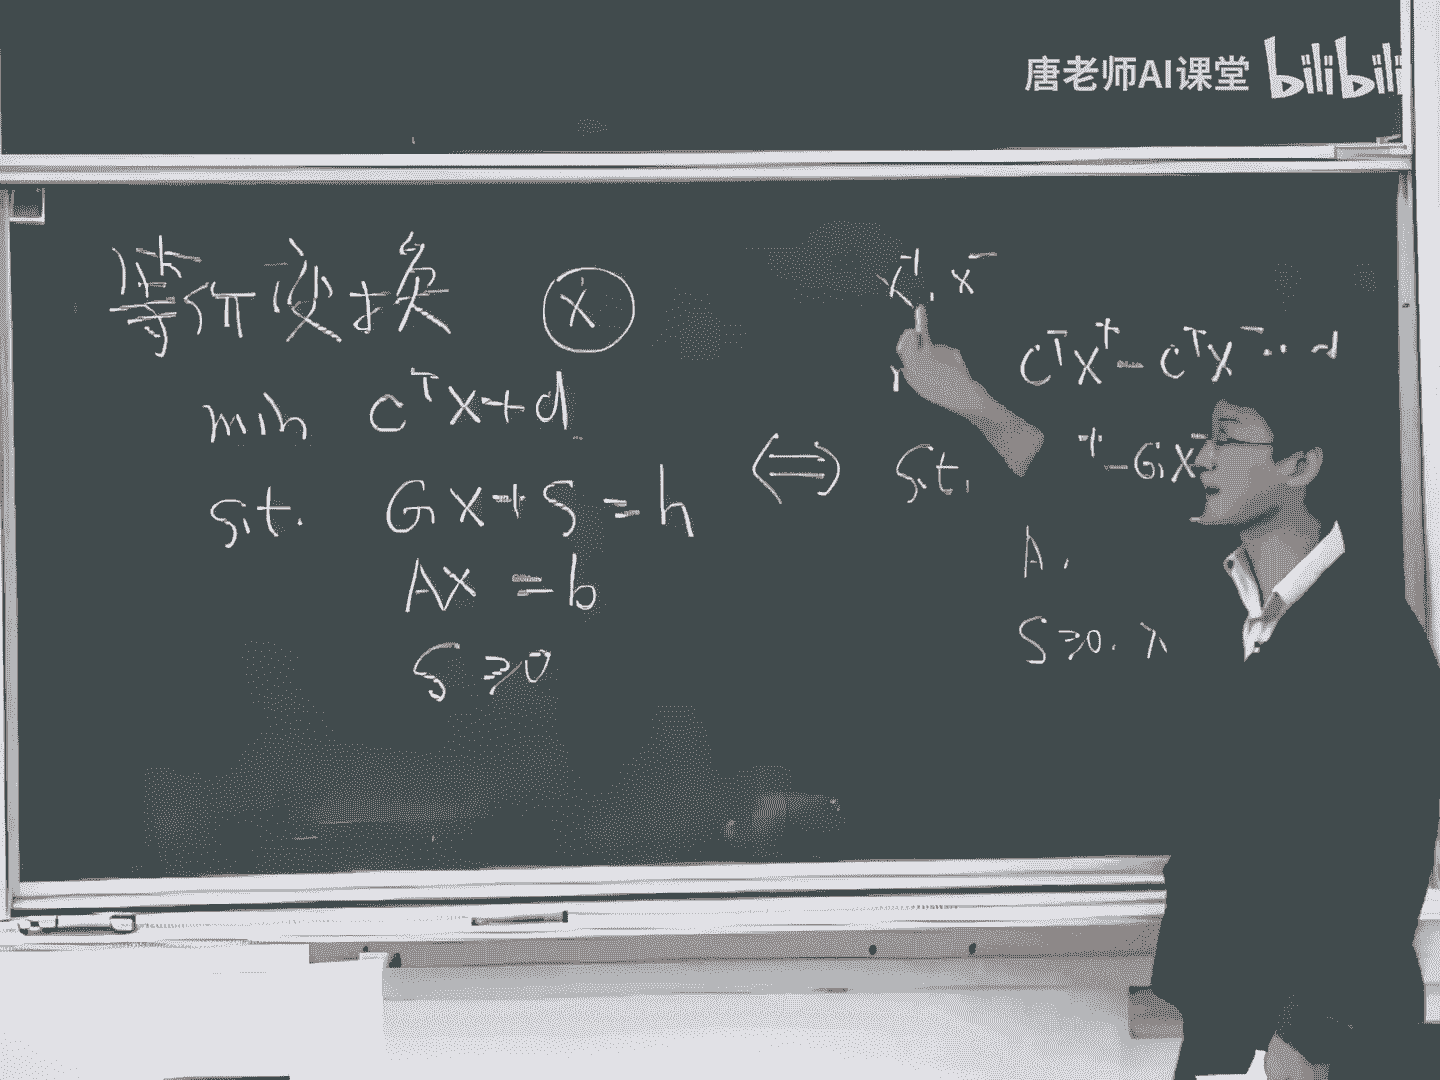 唐老师AI课堂 bilibili
等价变换 x
min cᵀx+d
s.t. Gx+s=h
Ax=b
s≥0
⟺
x⁺, x⁻
cᵀx⁺-cᵀx⁻
s.t. ⁺-Gx⁻
A
s≥0.